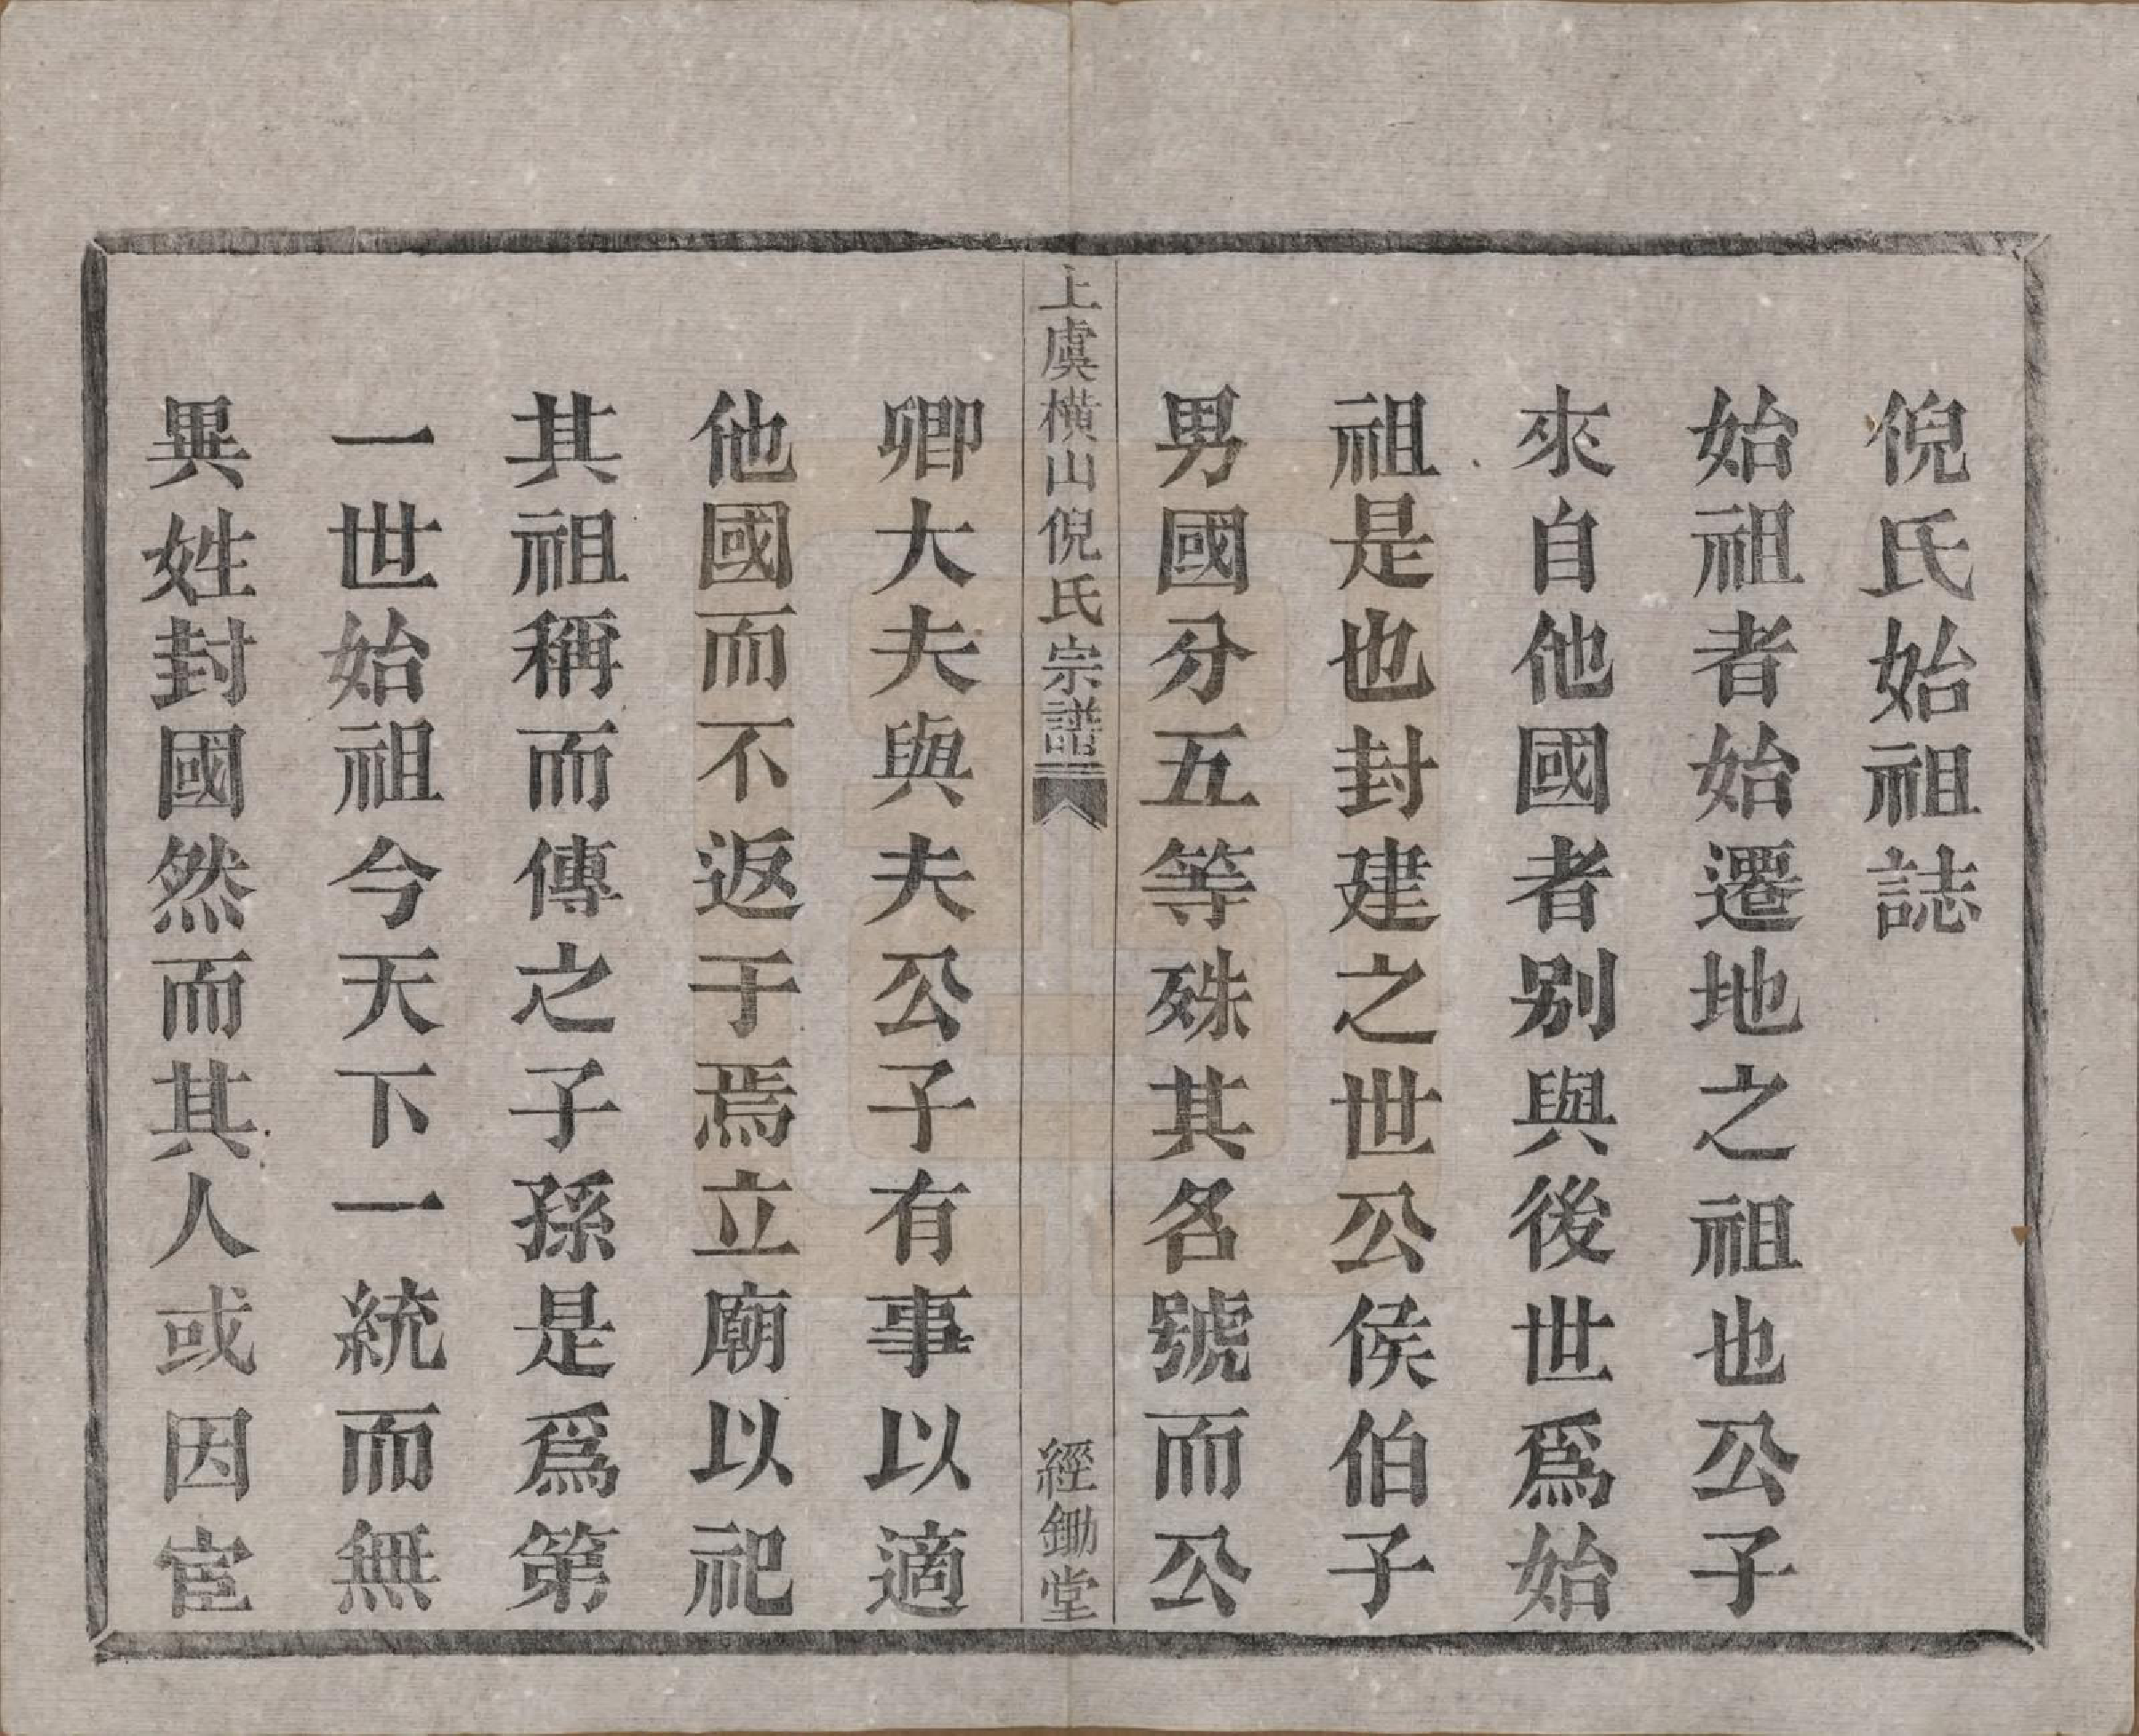 倪氏始祖誌
始祖者始遷地之祖也公子
來自他國者别與後世爲始
祖是也封建之世公侯伯子
男國分五等殊其名號而公
上虞橫山倪氏宗譜
經鋤堂
卿大夫與夫公子有事以適
他國而不返于焉立廟以祀
其祖稱而傳之子孫是爲第
一世始祖今天下一統而無
異姓封國然而其人或因宦